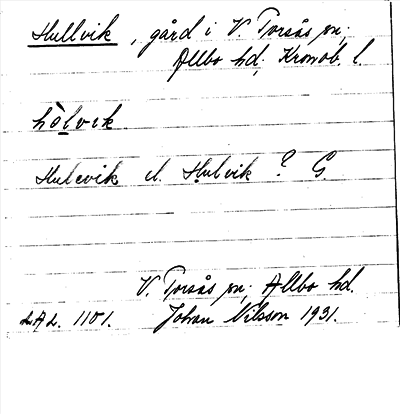 Hullvik, gård i V. Torsås sn;
Allbo hd; Kronob. l.
hòlvik
Hulevik el. Hulvik ? G.
V. Torsås sn; Allbo hd.
LAL. 1101. Johan Nilsson 1931.